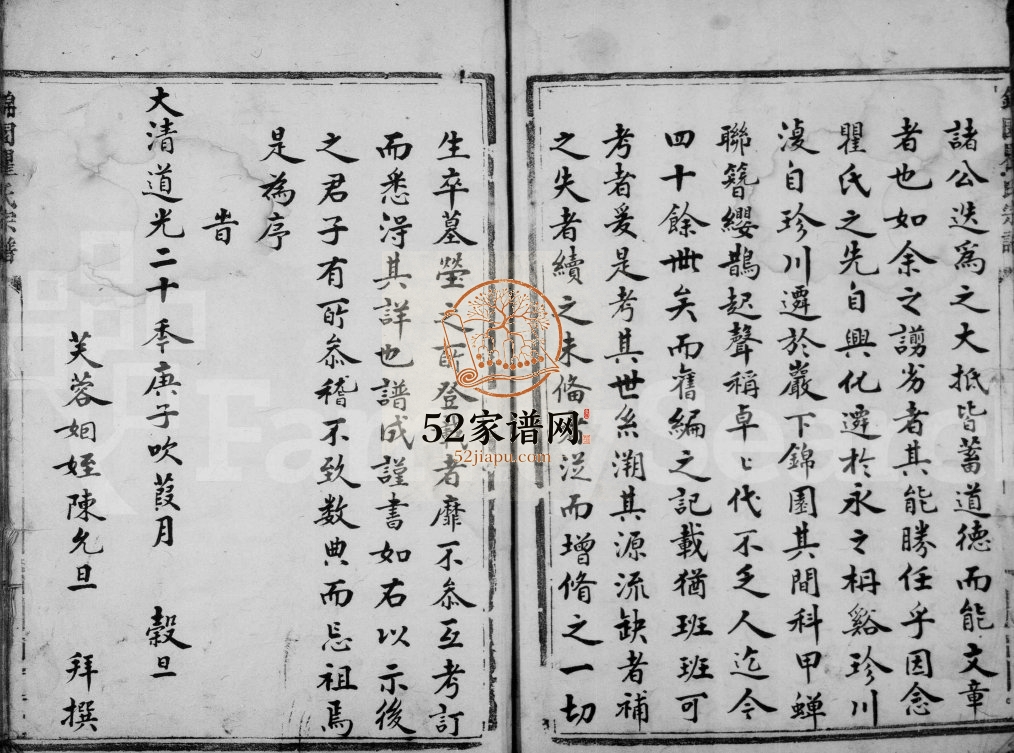 諸公迭爲之大抵皆蓄道德而能文章
者也如余之謭劣者其能勝任乎因念
瞿氏之先自興化遷於永之枬谿珍川
澓自珍川遷於巖下錦園其間科甲蟬
聯簪纓鵲起聲稱卓〻代不乏人迄今
四十餘世矣而舊編之記載猶班班可
考者爰是考其世系溯其源流缺者補
之失者續之未俻 從而增修之一切
生卒墓塋之 登 者靡不叅互考訂
而悉淂其詳也譜成謹書如右以示後
之君子有所叅稽不致数典而忘祖焉
是為序
旹
大清道光二十秊庚子吹葭月 穀旦
芙蓉姻姪陳允旦 拜撰
錦園瞿氏宗譜
52家谱网
52jiapu.com
FamilySearch